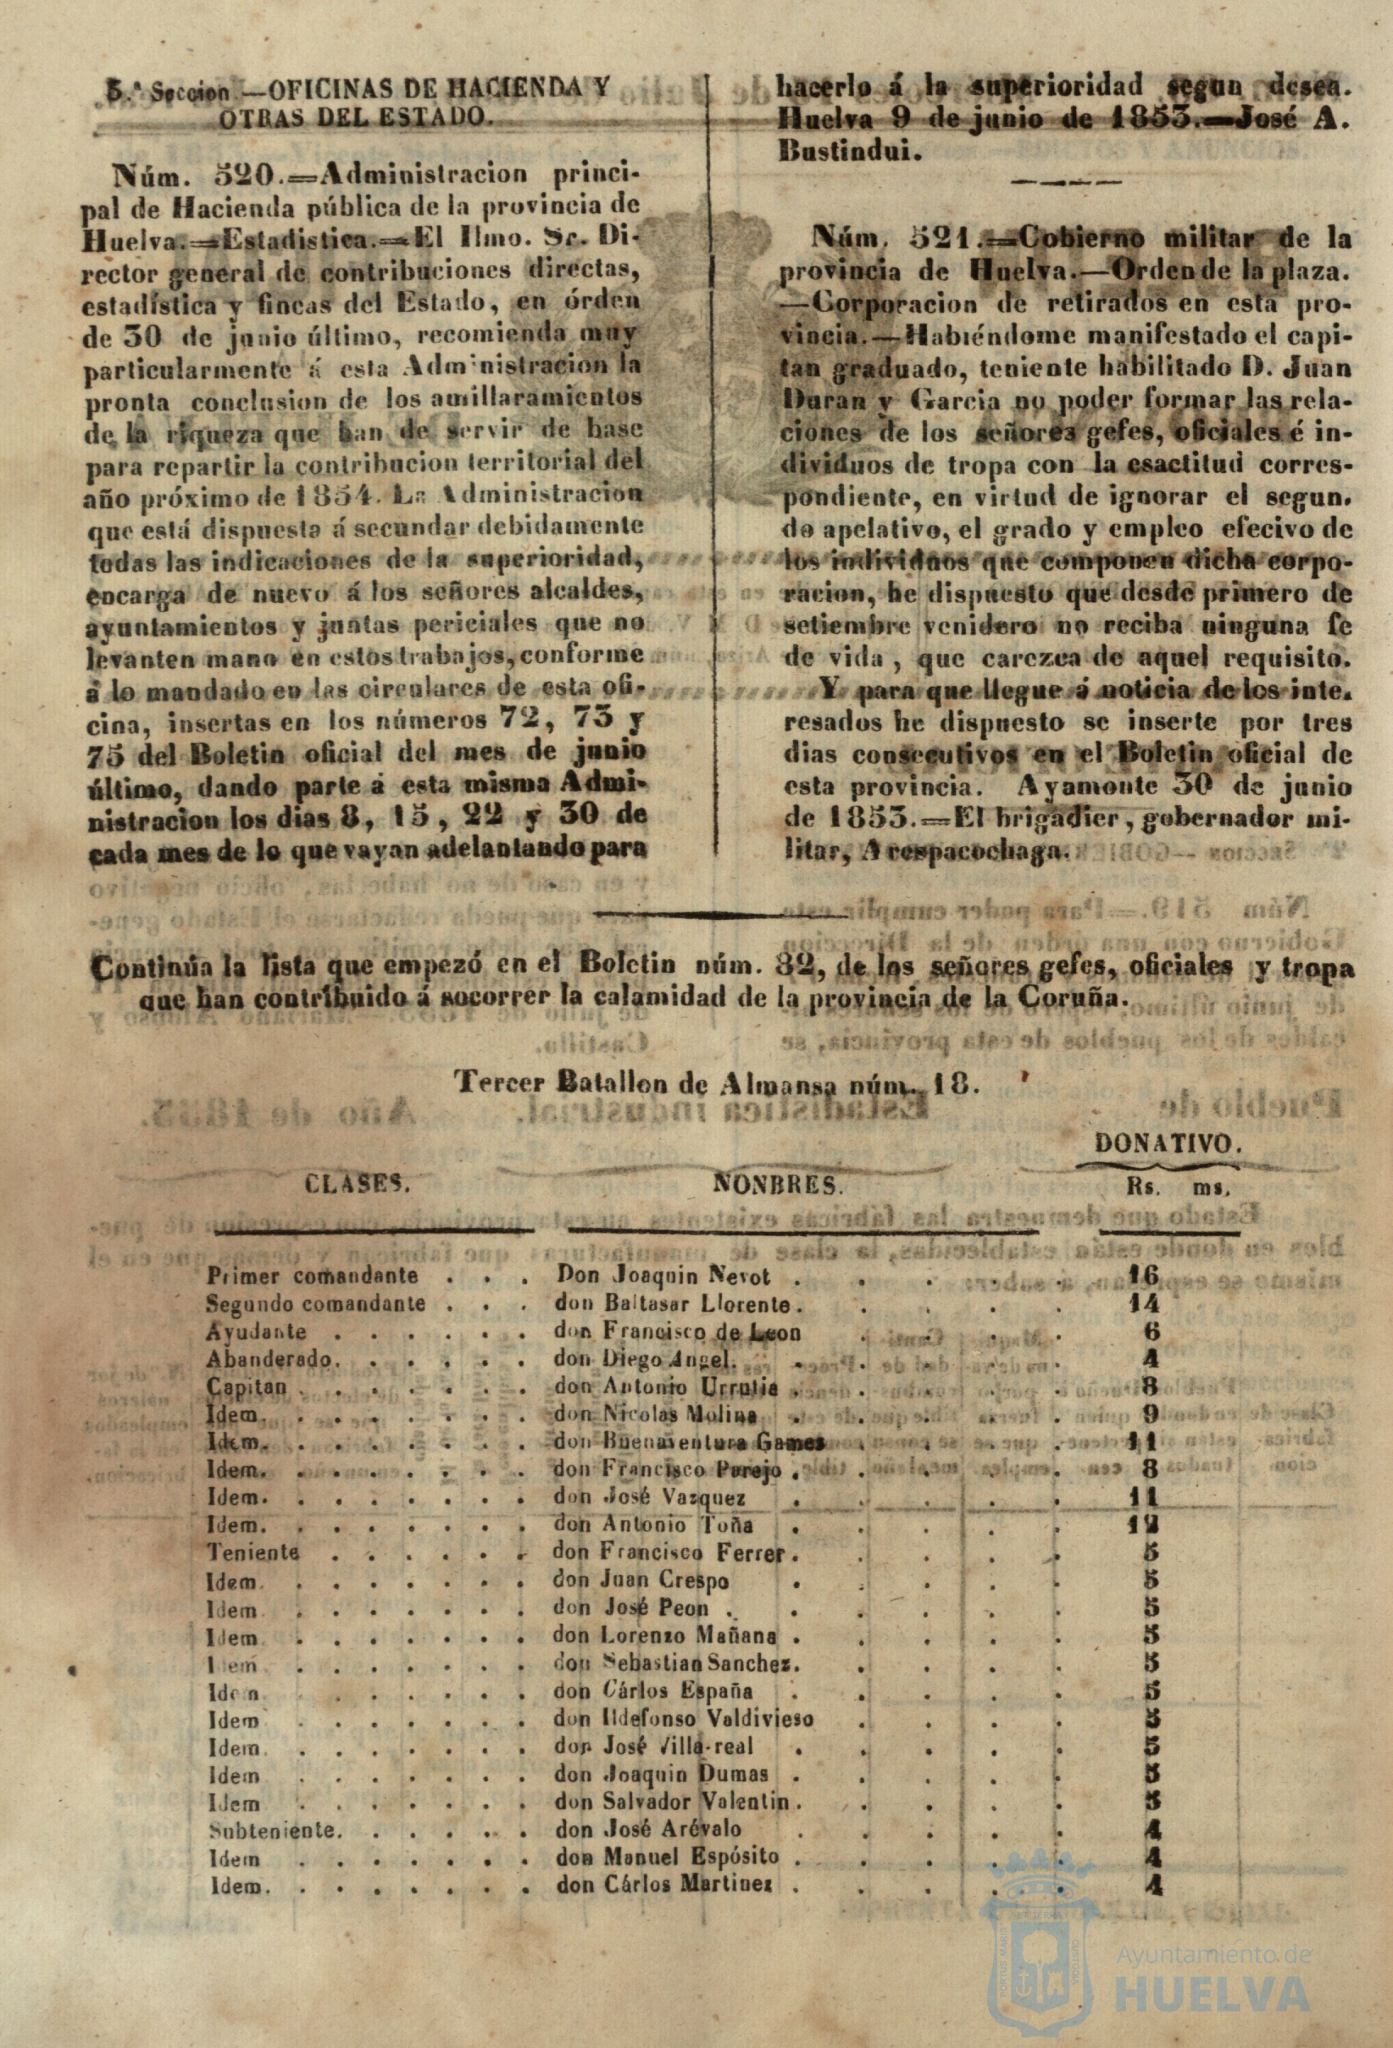 5.ª Seccion —OFICINAS DE HACIENDA Y
OTRAS DEL ESTADO.
Núm. 520.=Administracion princi-
pal de Hacienda pública de la provincia de
Huelva.=Estadistica.=El Ilmo. Sr. Di-
rector general de contribuciones directas,
estadística y fincas del Estado, en órden
de 30 de junio último, recomienda muy
particularmente á esta Administracion la
pronta conclusion de los amillaramientos
de la riqueza que han de servir de base
para repartir la contribucion territorial del
año próximo de 1854. La Administracion
que está dispuesta á secundar debidamente
todas las indicaciones de la superioridad,
encarga de nuevo á los señores alcaldes,
ayuntamientos y juntas periciales que no
levanten mano en estos trabajos, conforme
á lo mandado en las circulares de esta ofi-
cina, insertas en los números 72, 73 y
75 del Boletin oficial del mes de junio
último, dando parte á esta misma Admi-
nistracion los dias 8, 15, 22 y 30 de
cada mes de lo que vayan adelantando para
hacerlo á la superioridad segun desea.
Huelva 9 de junio de 1853.—José A.
Bustindui.
Núm. 521.=Gobierno militar de la
provincia de Huelva.—Orden de la plaza.
—Corporacion de retirados en esta pro-
vincia.—Habiéndome manifestado el capi-
tan graduado, teniente habilitado D. Juan
Duran y Garcia no poder formar las rela-
ciones de los señores gefes, oficiales é in-
dividuos de tropa con la esactitud corres-
pondiente, en virtud de ignorar el segun.
do apelativo, el grado y empleo efecivo de
los individuos que componen dicha corpo-
racion, he dispuesto que desde primero de
setiembre venidero no reciba ninguna fe
de vida, que carezca de aquel requisito.
Y para que llegue á noticia de los inte.
resados he dispuesto se inserte por tres
dias consecutivos en el Boletin oficial de
esta provincia. Ayamonte 30 de junio
de 1853.=El brigadier, gobernador mi-
litar, Arespacochaga.
Continúa la lista que empezó en el Boletin núm. 82, de los señores gefes, oficiales y tropa
que han contribuido á socorrer la calamidad de la provincia de la Coruña.
Tercer Batallon de Almansa núm. 18.
DONATIVO.
CLASES. NONBRES. Rs. ms.
Primer comandante . . . Don Joaquin Nevot . . . . . 16
Segundo comandante . . . don Baltasar Llorente. . . . . 14
Ayudante . . . . . . don Francisco de Leon . . . . 6
Abanderado. . . . . . don Diego Angel. . . . . . 4
Capitan . . . . . . . don Antonio Urrutia . . . . . 8
Idem. . . . . . . . don Nicolas Molina . . . . . 9
Idem. . . . . . . . don Buenaventura Games . . . . 11
Idem. . . . . . . . don Francisco Parejo . . . . . 8
Idem. . . . . . . . don José Vazquez . . . . . 11
Idem. . . . . . . . don Antonio Toña . . . . . 12
Teniente . . . . . . don Francisco Ferrer. . . . . 5
Idem. . . . . . . . don Juan Crespo . . . . . 5
Idem . . . . . . . don José Peon . . . . . . 5
Idem . . . . . . . don Lorenzo Mañana . . . . . 5
Idem . . . . . . . don Sebastian Sanchez. . . . . 5
Idem . . . . . . don Cárlos España . . . . . 5
Idem . . . . . . . don Ildefonso Valdivieso . . . . 5
Idem. . . . . . . . don José Villa-real . . . . . 5
Idem . . . . . . . don Joaquin Dumas . . . . . 5
Idem . . . . . . . don Salvador Valentin. . . . . 5
Subteniente. . . . . . don José Arévalo . . . . . 4
Idem . . . . . . . don Manuel Espósito . . . . . 4
Idem. . . . . . . . don Cárlos Martinez . . . . . 4
Ayuntamiento de
HUELVA